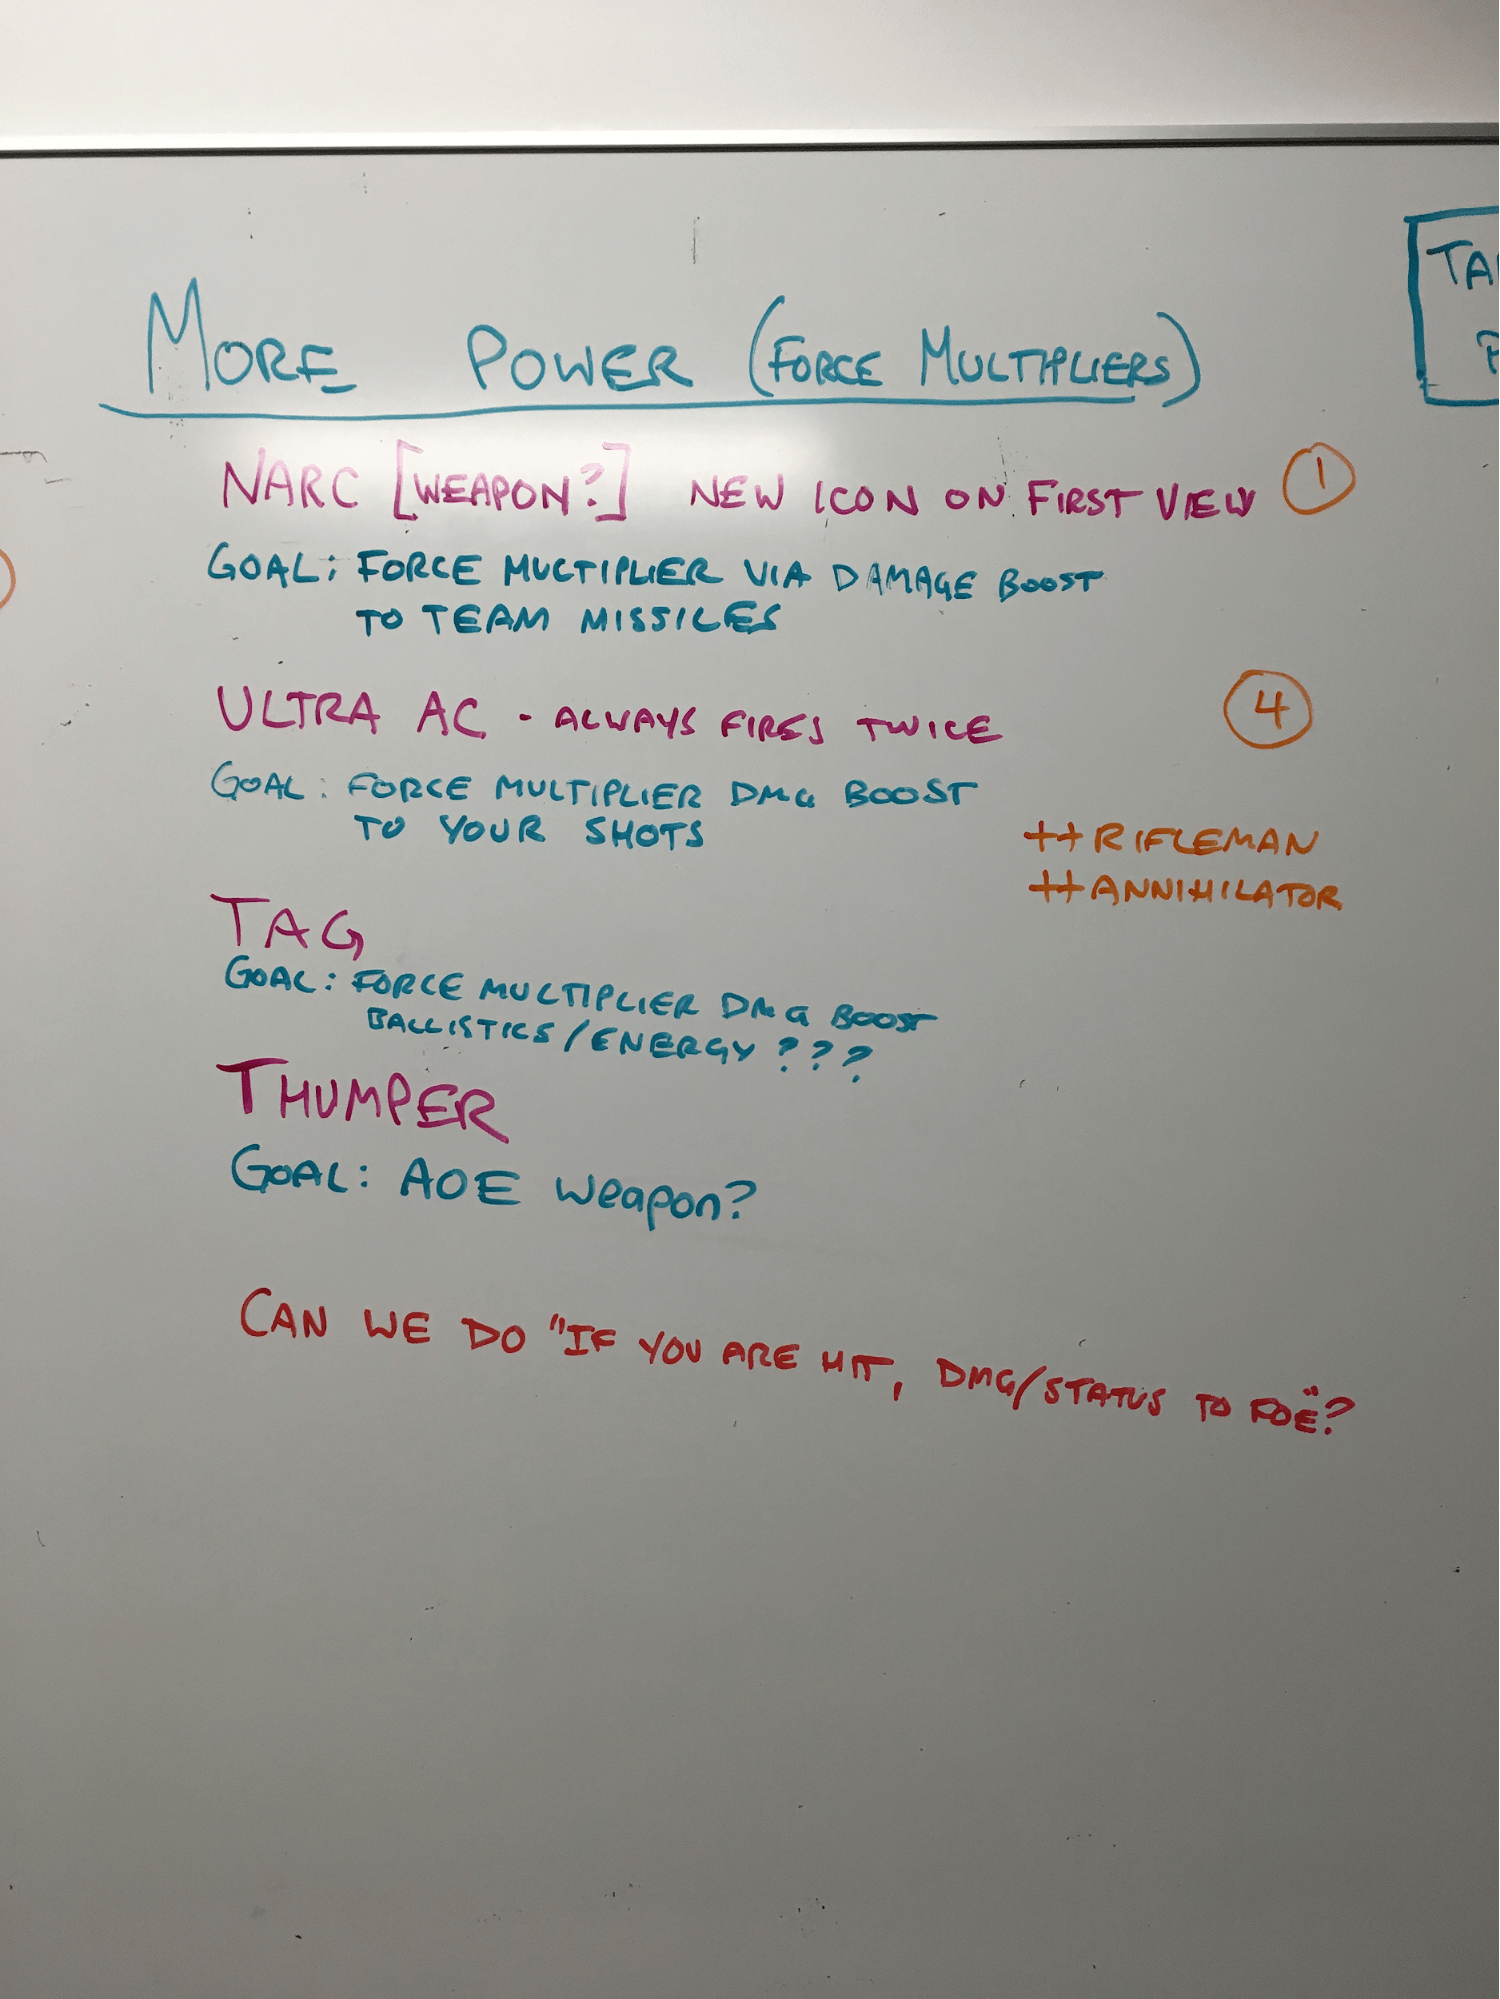 MORE POWER (FORCE MULTIPLIERS)
NARC [WEAPON?] NEW ICON ON FIRST VIEW 1
GOAL: FORCE MULTIPLIER VIA DAMAGE BOOST
TO TEAM MISSILES
ULTRA AC - ALWAYS FIRES TWICE 4
GOAL: FORCE MULTIPLIER DMG BOOST
TO YOUR SHOTS
++RIFLEMAN
++ANNIHILATOR
TAG
GOAL: FORCE MULTIPLIER DMG BOOST
BALLISTICS/ENERGY???
THUMPER
GOAL: AOE weapon?
CAN WE DO "IF YOU ARE HIT, DMG/STATUS TO FOE"?